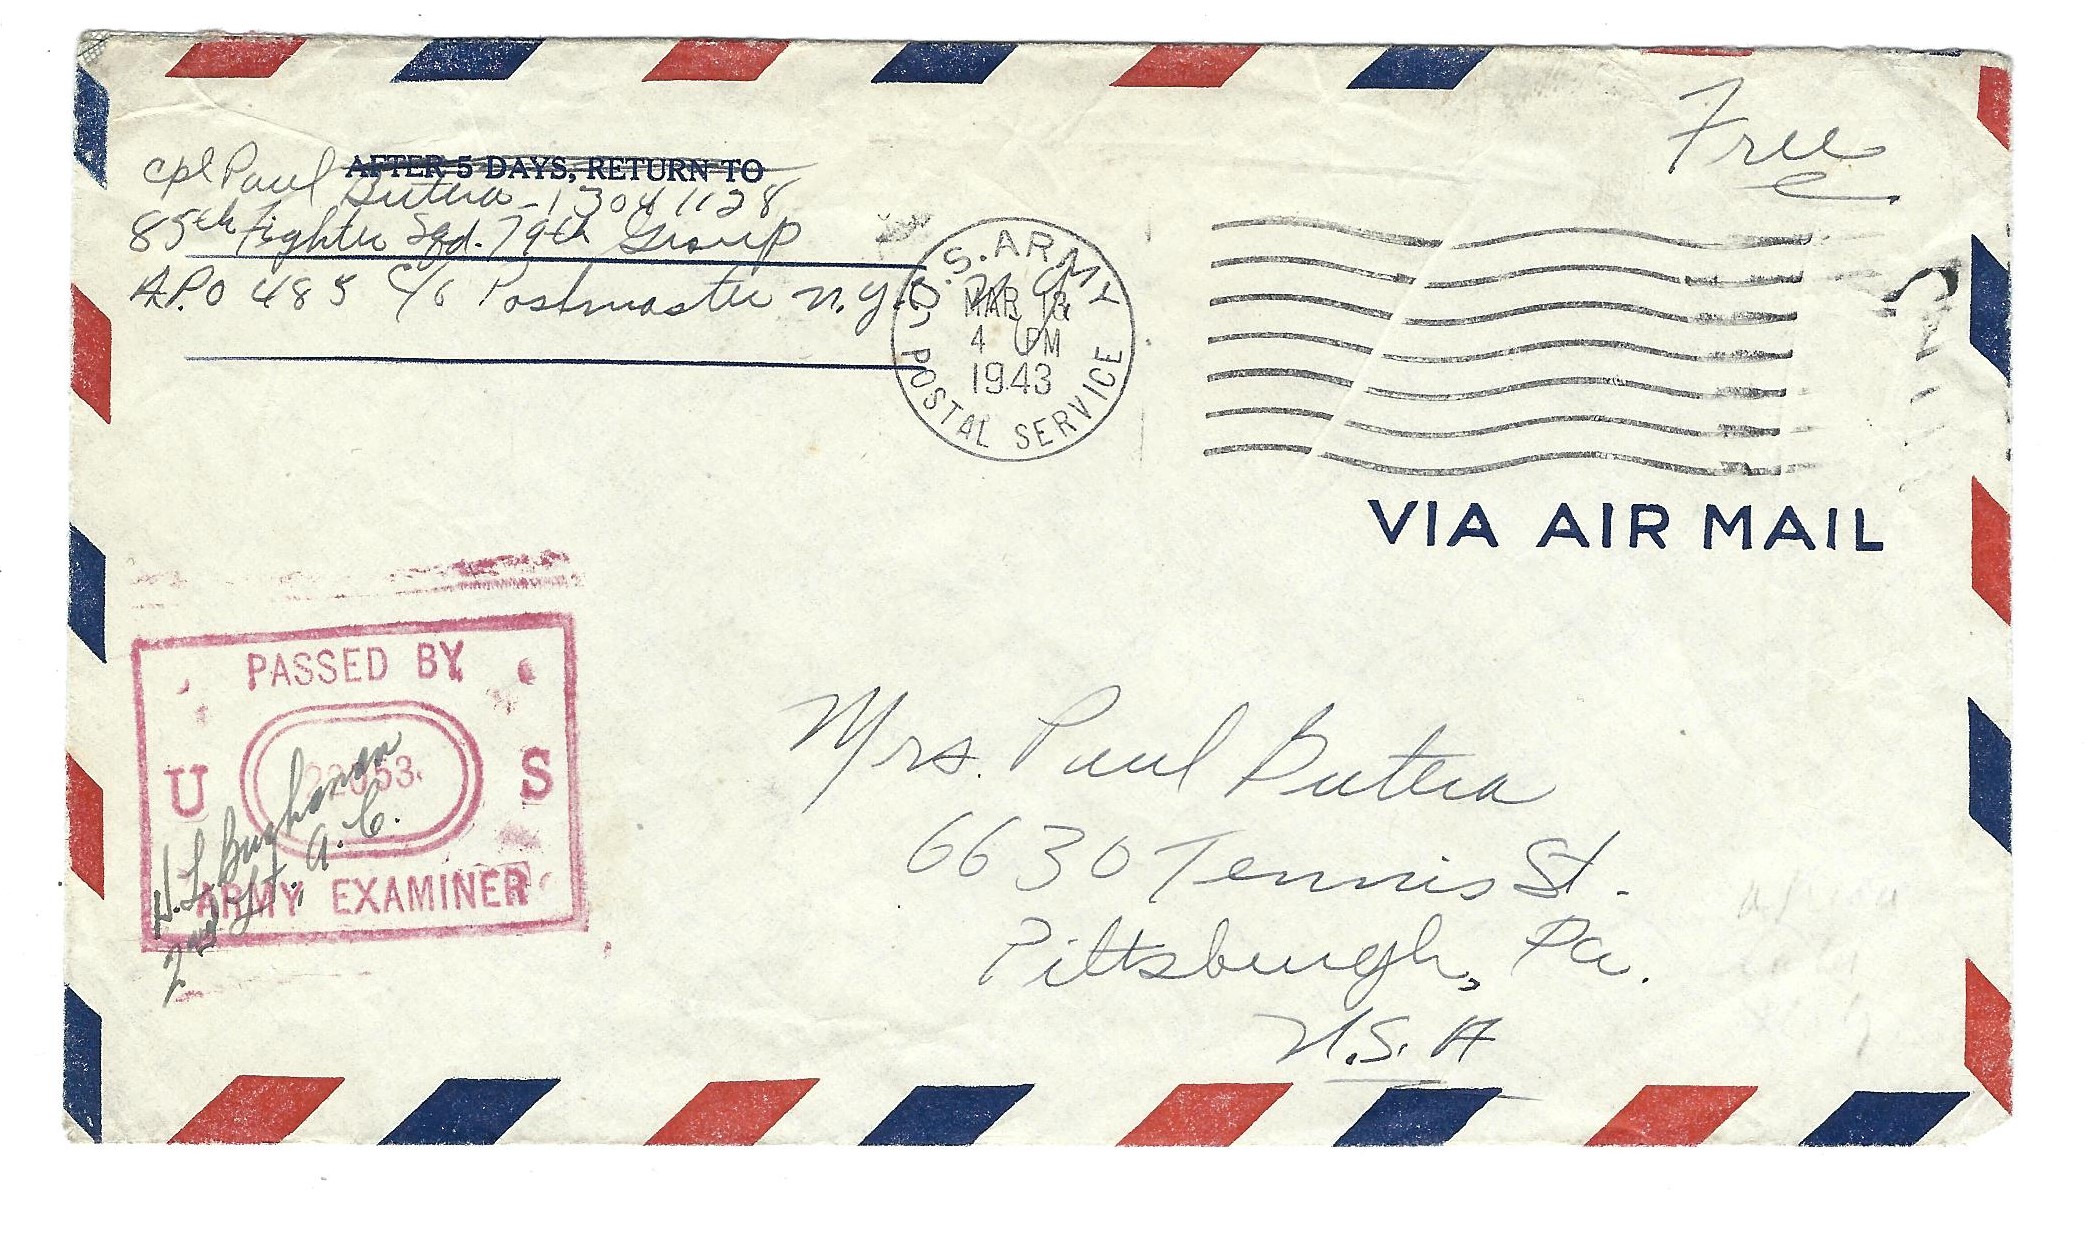 Free
AFTER 5 DAYS, RETURN TO
Cpl Paul Butera - 13041128
85th Fighter Sqd. 79th Group
A.P.O 485 C/o Postmaster N.Y.
U.S. ARMY
MAR 13
4 PM
1943
POSTAL SERVICE
VIA AIR MAIL
PASSED BY
U S
ARMY EXAMINER
H. L. Bughman
2nd Lt., A.C.
Mrs. Paul Butera
6630 Tennis St.
Pittsburgh, Pa.
U.S.A